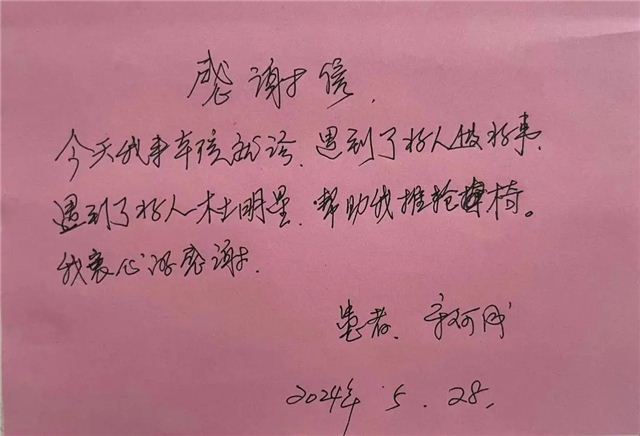 感谢信.
今天我来院就诊,遇到了好人做好事.
遇到了好人一杜明星,帮助我推轮椅。
我衷心的感谢.
患者.
2024年 5. 28.